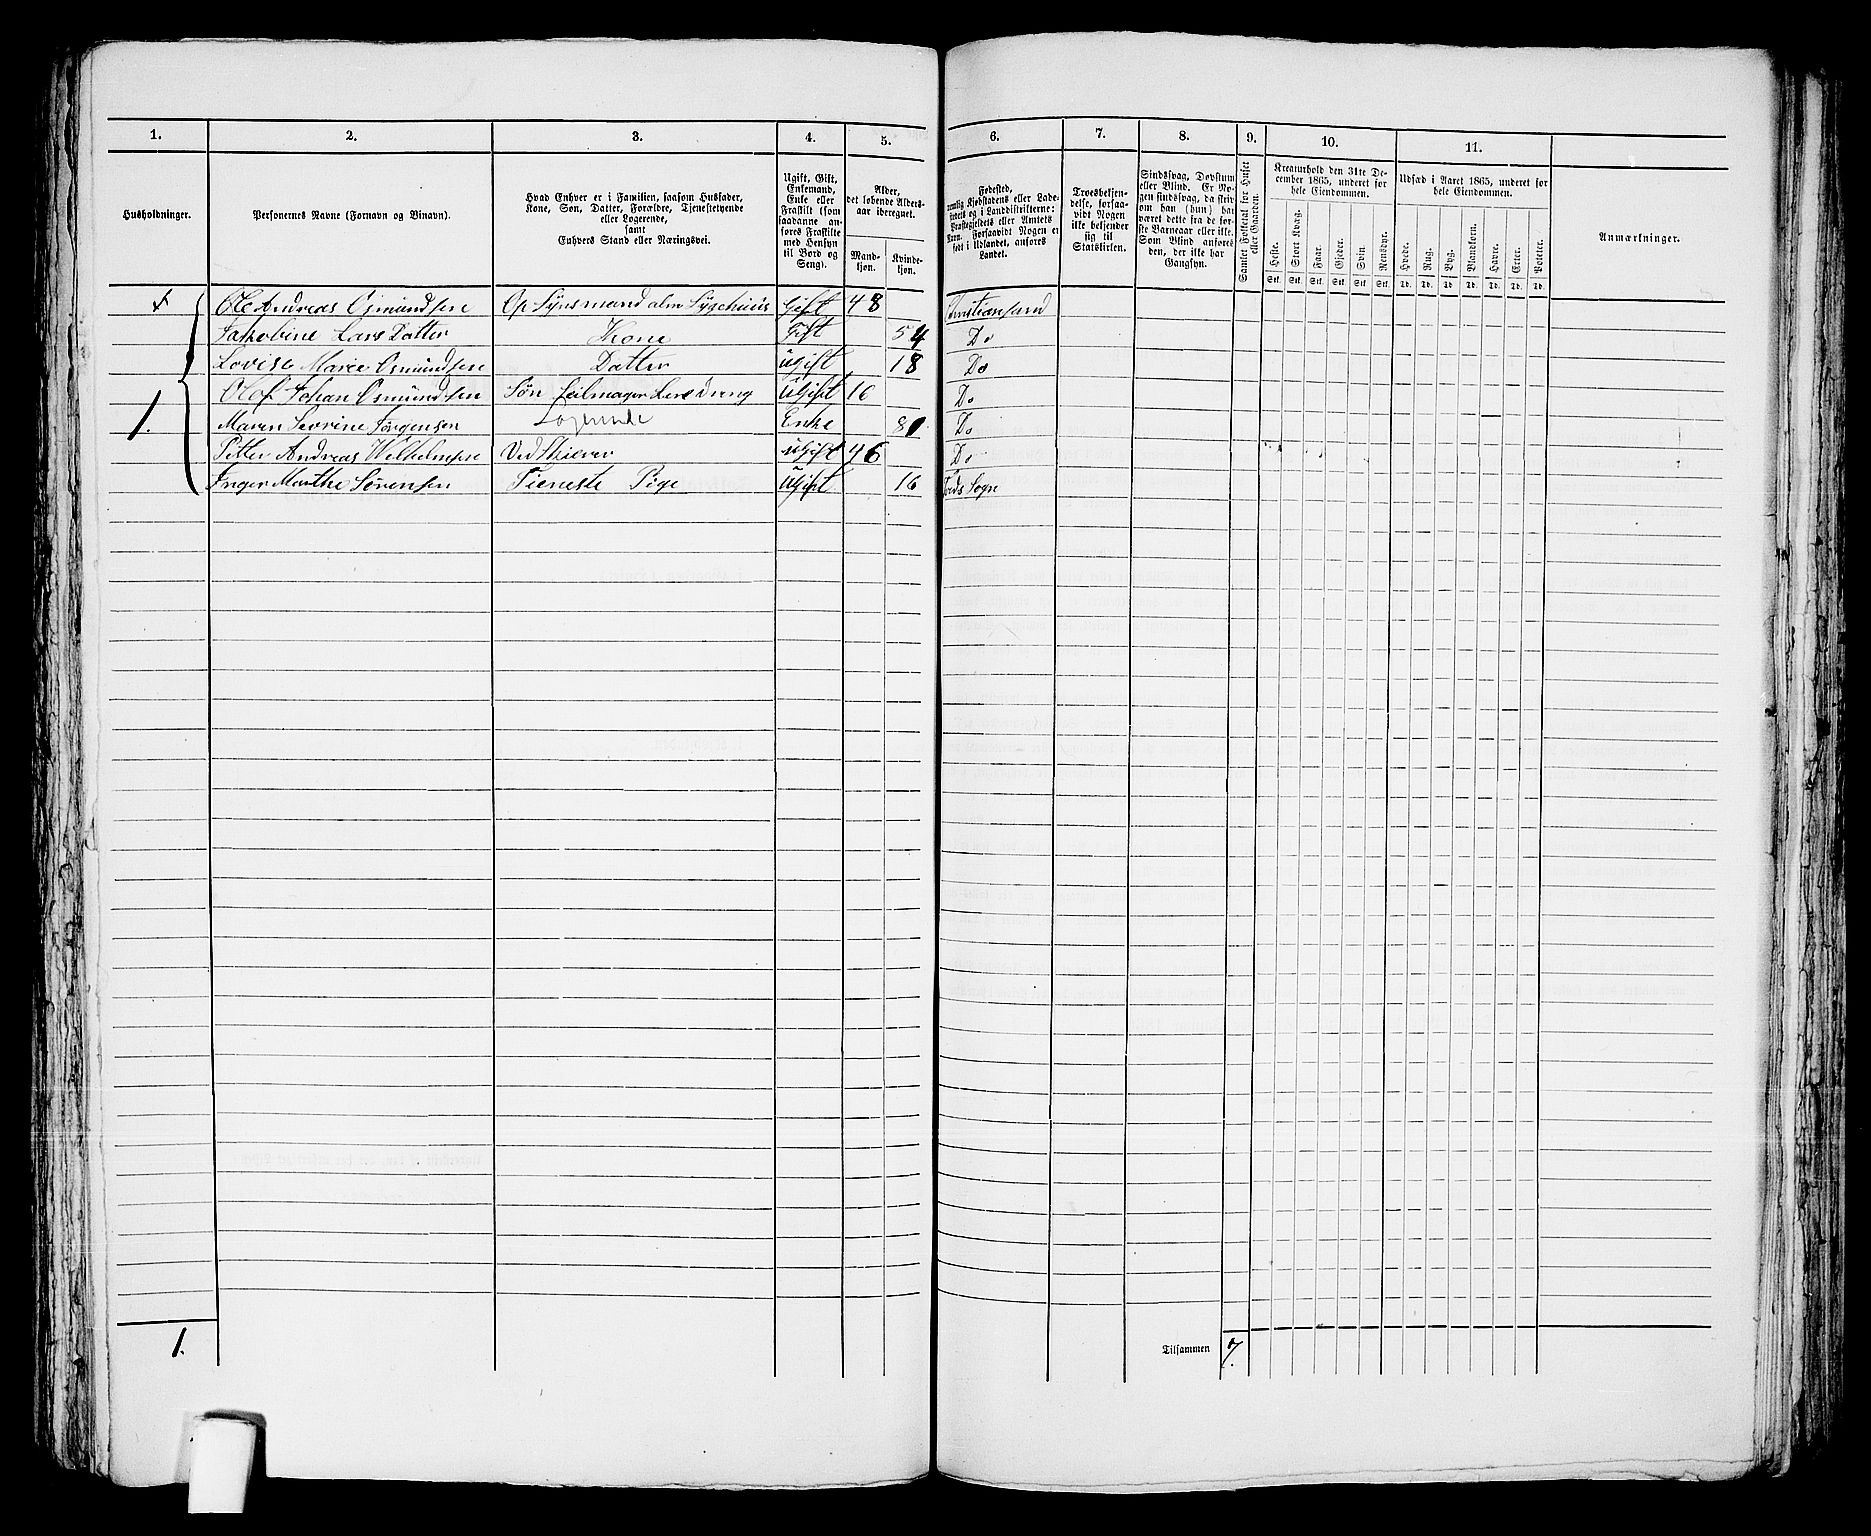 1. 2. 3. 4. 5. 6. 7. 8. 9. 10. 11.
Husholdninger.
Personernes Navne (Fornavn og Binavn).
Hvad Enhver er i Familien, saasom Husfader,
Kone, Søn, Datter, Forældre, Tjenestetyende
eller Logerende,
samt
Enhvers Stand eller Næringsvei.
Ugift, Gift,
Enkemand,
Enke eller
Fraskilt (som
saadanne an-
føres Fraskilte
med Hensyn
til Bord og
Seng).
Alder,
det løbende Alders-
aar iberegnet.
Mand-
kjøn.
Kvinde-
kjøn.
Fødested,
nemlig Kjøbstadens eller Lade-
stedets og i Landdistrikterne:
Præstegjeldets eller Amtets
Navn. Forsaavidt Nogen er
født i Udlandet, anføres
Landet.
Troesbekjen-
delse, forsaa-
vidt Nogen
ikke bekjender
sig til
Statskirken.
Sindssvag, Døvstum
eller Blind. Er No-
gen sindssvag, da skriv
om han (hun) har
været dette fra de før-
ste Barneaar eller ikke.
Som Blind anføres
den, der ikke har
Gangsyn.
Samlet Folketal for Huset
eller Gaarden.
Kreaturhold den 31te De-
cember 1865, underet for
hele Eiendommen.
Heste. Stort Kvæg. Faar. Gjeder. Svin. Rensdyr.
Stk. Stk. Stk. Stk. Stk. Stk.
Udsæd i Aaret 1865, underet for
hele Eiendommen.
Hvede. Rug. Byg. Blandkorn. Havre. Erter. Poteter.
Td. Td. Td. Td. Td. Td. Td.
Anmærkninger.
Ole Andreas Osmundsen Op Synsmand alm Sygehuus Gift 48 Christiansand
Jakobine Lars Datter Kone Gift 54 Do
Lovise Marie Osmundsen Datter ugift 18 Do
Olof Johan Osmundsen Søn Seilmager Lære Dreng Ugift 16 Do
1. Maren Severine Jørgensen Logerende Enke 81 Do
Petter Andreas Wilhelmsen Ved Skriver ugift 46 Do
Inger Marthe Sørensen Tieneste Pige Ugift 16 Sogn
1. Tilsammen 7.